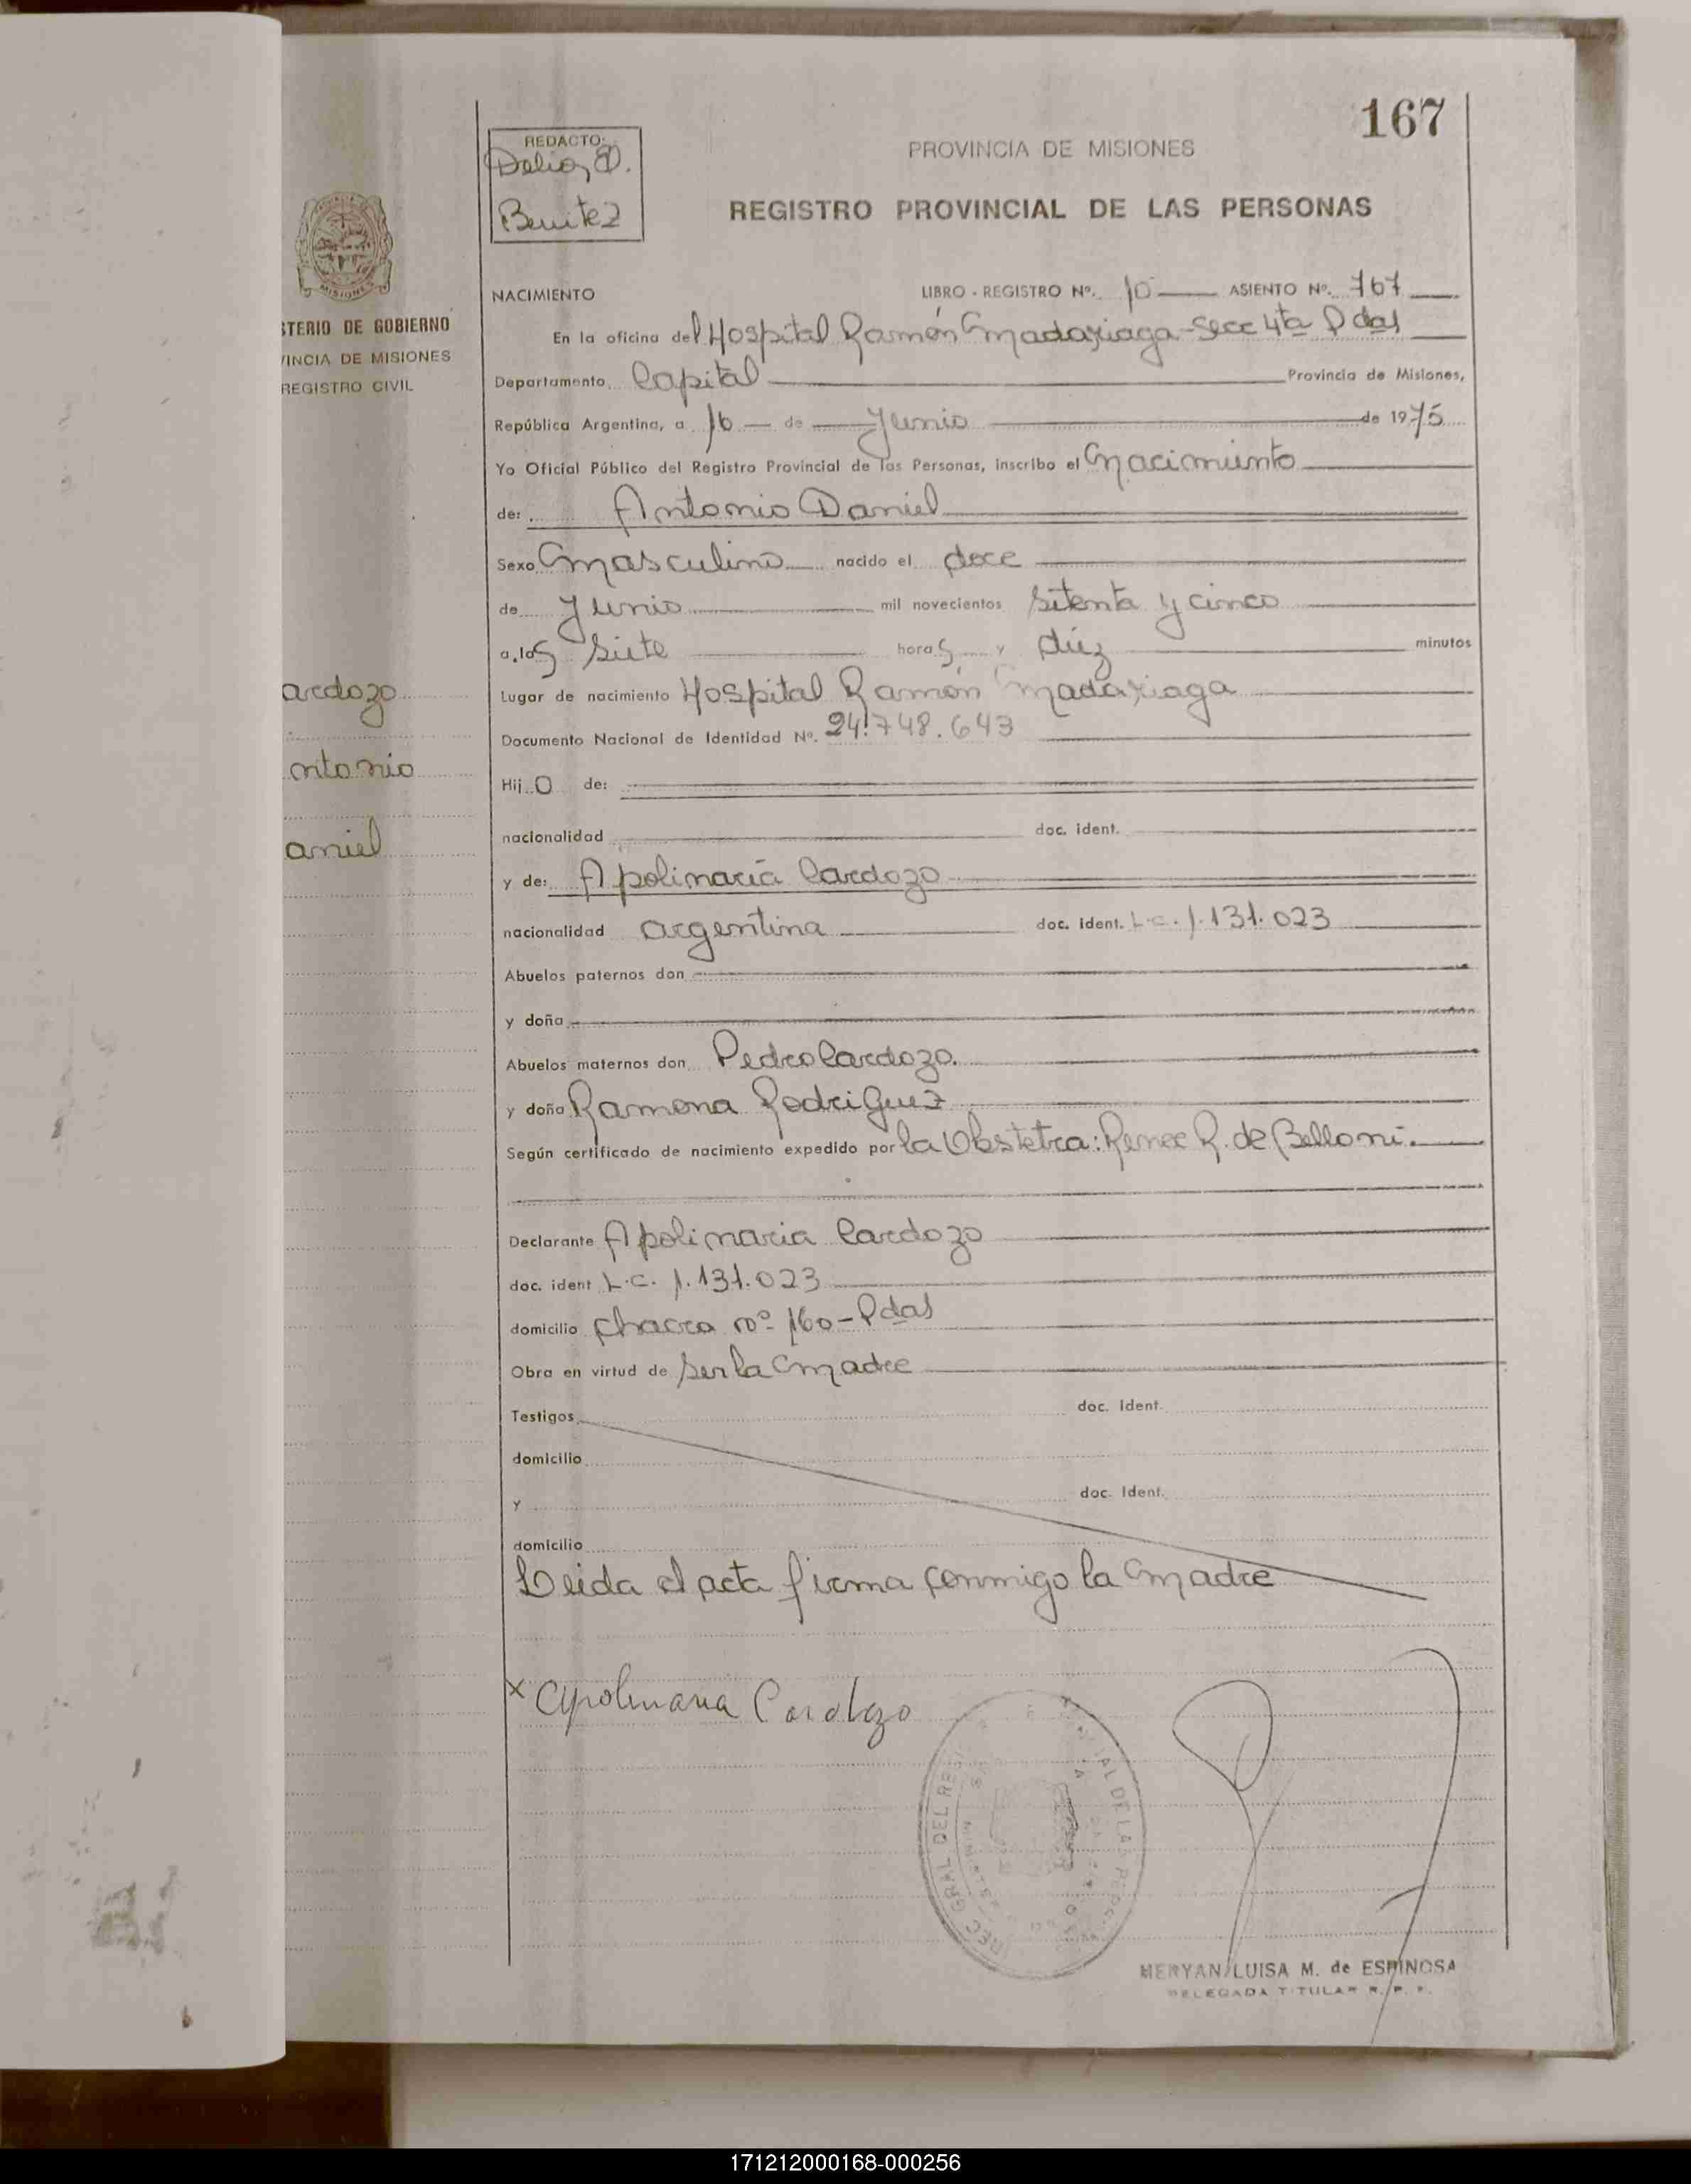 167
REDACTO:
Delia, D.
Benitez
PROVINCIA DE MISIONES
REGISTRO PROVINCIAL DE LAS PERSONAS
STERIO DE GOBIERNO
VINCIA DE MISIONES
REGISTRO CIVIL
ardozo
ntonio
aniel
NACIMIENTO LIBRO - REGISTRO Nº. 10 ASIENTO Nº. 767
En la oficina del Hospital Ramón Madariaga - Secc 4ta Pdas
Departamento Capital Provincia de Misiones,
República Argentina, a 16 de Junio de 1975
Yo Oficial Público del Registro Provincial de las Personas, inscribo el Nacimiento
de: Antonio Daniel
Sexo Masculino nacido el doce
de Junio mil novecientos setenta y cinco
a las siete horas y diez minutos
Lugar de nacimiento Hospital Ramón Madariaga
Documento Nacional de Identidad Nº. 24.748.643
Hijo de:
nacionalidad doc. ident.
y de: Apolinaria Cardozo
nacionalidad argentina doc. ident. L.C. 1.131.023
Abuelos paternos don
y doña
Abuelos maternos don Pedro Cardozo.
y doña Ramona Rodriguez
Según certificado de nacimiento expedido por la Obstetra: Renee R. de Belloni.
Declarante Apolinaria Cardozo
doc. ident L.C. 1.131.023
domicilio Chacra nº 160 - Pdas
Obra en virtud de ser la Madre
Testigos doc. Ident.
domicilio
y doc. Ident.
domicilio
Leida el acta firma conmigo la Madre
x Apolinaria Cardozo
MERYAN LUISA M. de ESPINOSA
DELEGADA TITULAR R. P. P.
171212000168-000256